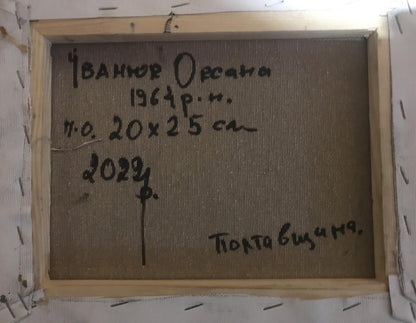 Іванюк Оксана
1964 р.н.
п.о. 20х25 см
2022 р.
Полтавщина.